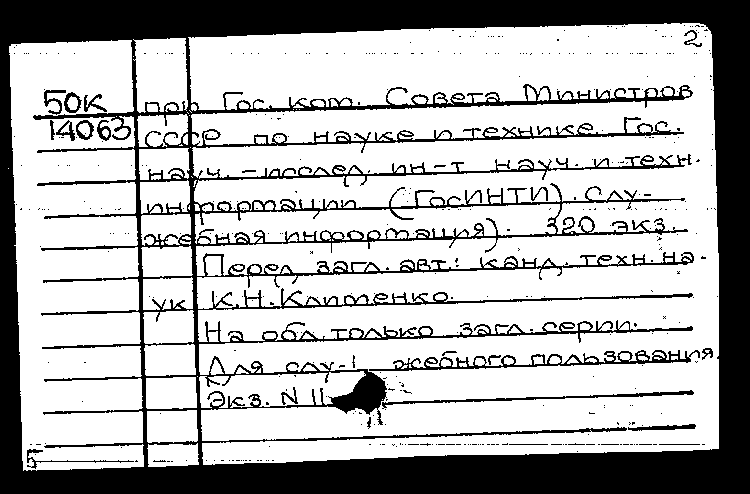 2
50К при Гос. ком. Совета Министров
14063 СССР по науке и технике. Гос.
науч.-исслед. ин-т науч. и техн.
информации (ГосИНТИ). Слу-
жебная информация). 320 экз.
Перед загл. авт.: канд. техн. на-
ук К.Н.Клименко.
На обл. только загл. серии.
Для слу-! жебного пользования.
Экз. N 11
5